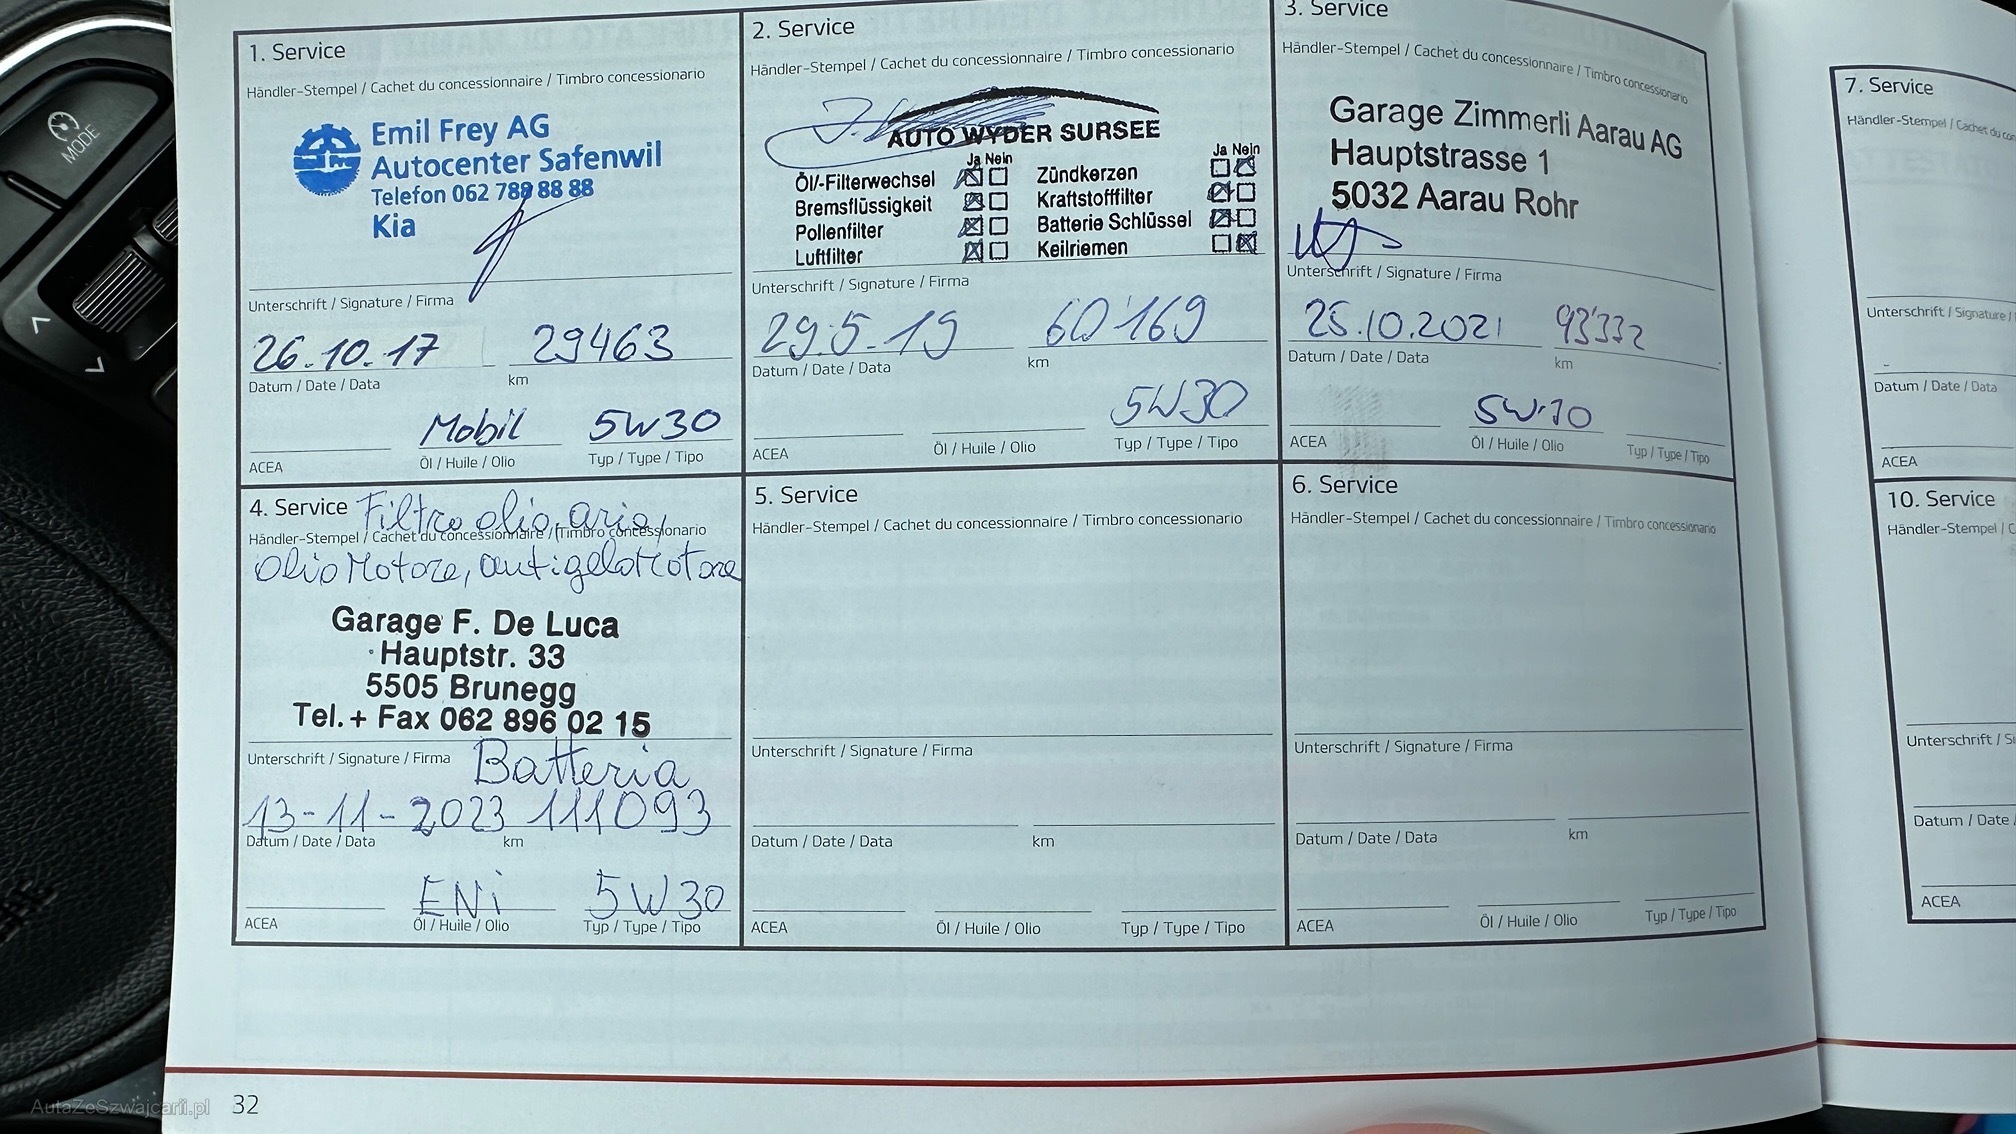 MODE
1. Service
Händler-Stempel / Cachet du concessionnaire / Timbro concessionario
Emil Frey AG
Autocenter Safenwil
Telefon 062 788 88 88
Kia
Unterschrift / Signature / Firma
26.10.17 29463
Datum / Date / Data km
Mobil 5W30
ACEA Öl / Huile / Olio Typ / Type / Tipo
2. Service
Händler-Stempel / Cachet du concessionnaire / Timbro concessionario
AUTO WYDER SURSEE
Ja Nein Ja Nein
Öl/-Filterwechsel Zündkerzen
Bremsflüssigkeit Kraftstofffilter
Pollenfilter Batterie Schlüssel
Luftfilter Keilriemen
Unterschrift / Signature / Firma
29.5.19 60'169
Datum / Date / Data km
5W30
ACEA Öl / Huile / Olio Typ / Type / Tipo
3. Service
Händler-Stempel / Cachet du concessionnaire / Timbro concessionario
Garage Zimmerli Aarau AG
Hauptstrasse 1
5032 Aarau Rohr
Unterschrift / Signature / Firma
25.10.2021 93'332
Datum / Date / Data km
ACEA Öl / Huile / Olio Typ / Type / Tipo
4. Service Filtro olio, aria,
Händler-Stempel / Cachet du concessionnaire / Timbro concessionario
olio Motore, antigelo Motore
Garage F. De Luca
Hauptstr. 33
5505 Brunegg
Tel. + Fax 062 896 02 15
Unterschrift / Signature / Firma Batteria
13-11-2023 111093
Datum / Date / Data km
ENi 5W30
ACEA Öl / Huile / Olio Typ / Type / Tipo
5. Service
Händler-Stempel / Cachet du concessionnaire / Timbro concessionario
Unterschrift / Signature / Firma
Datum / Date / Data km
ACEA Öl / Huile / Olio Typ / Type / Tipo
6. Service
Händler-Stempel / Cachet du concessionnaire / Timbro concessionario
Unterschrift / Signature / Firma
Datum / Date / Data km
ACEA Öl / Huile / Olio Typ / Type / Tipo
7. Service
Händler-Stempel / Cachet du con
Unterschrift / Signature /
Datum / Date / Data
ACEA
10. Service
Händler-Stempel / C
Unterschrift / Si
Datum / Date /
ACEA
32
AutaZeSzwajcarii.pl